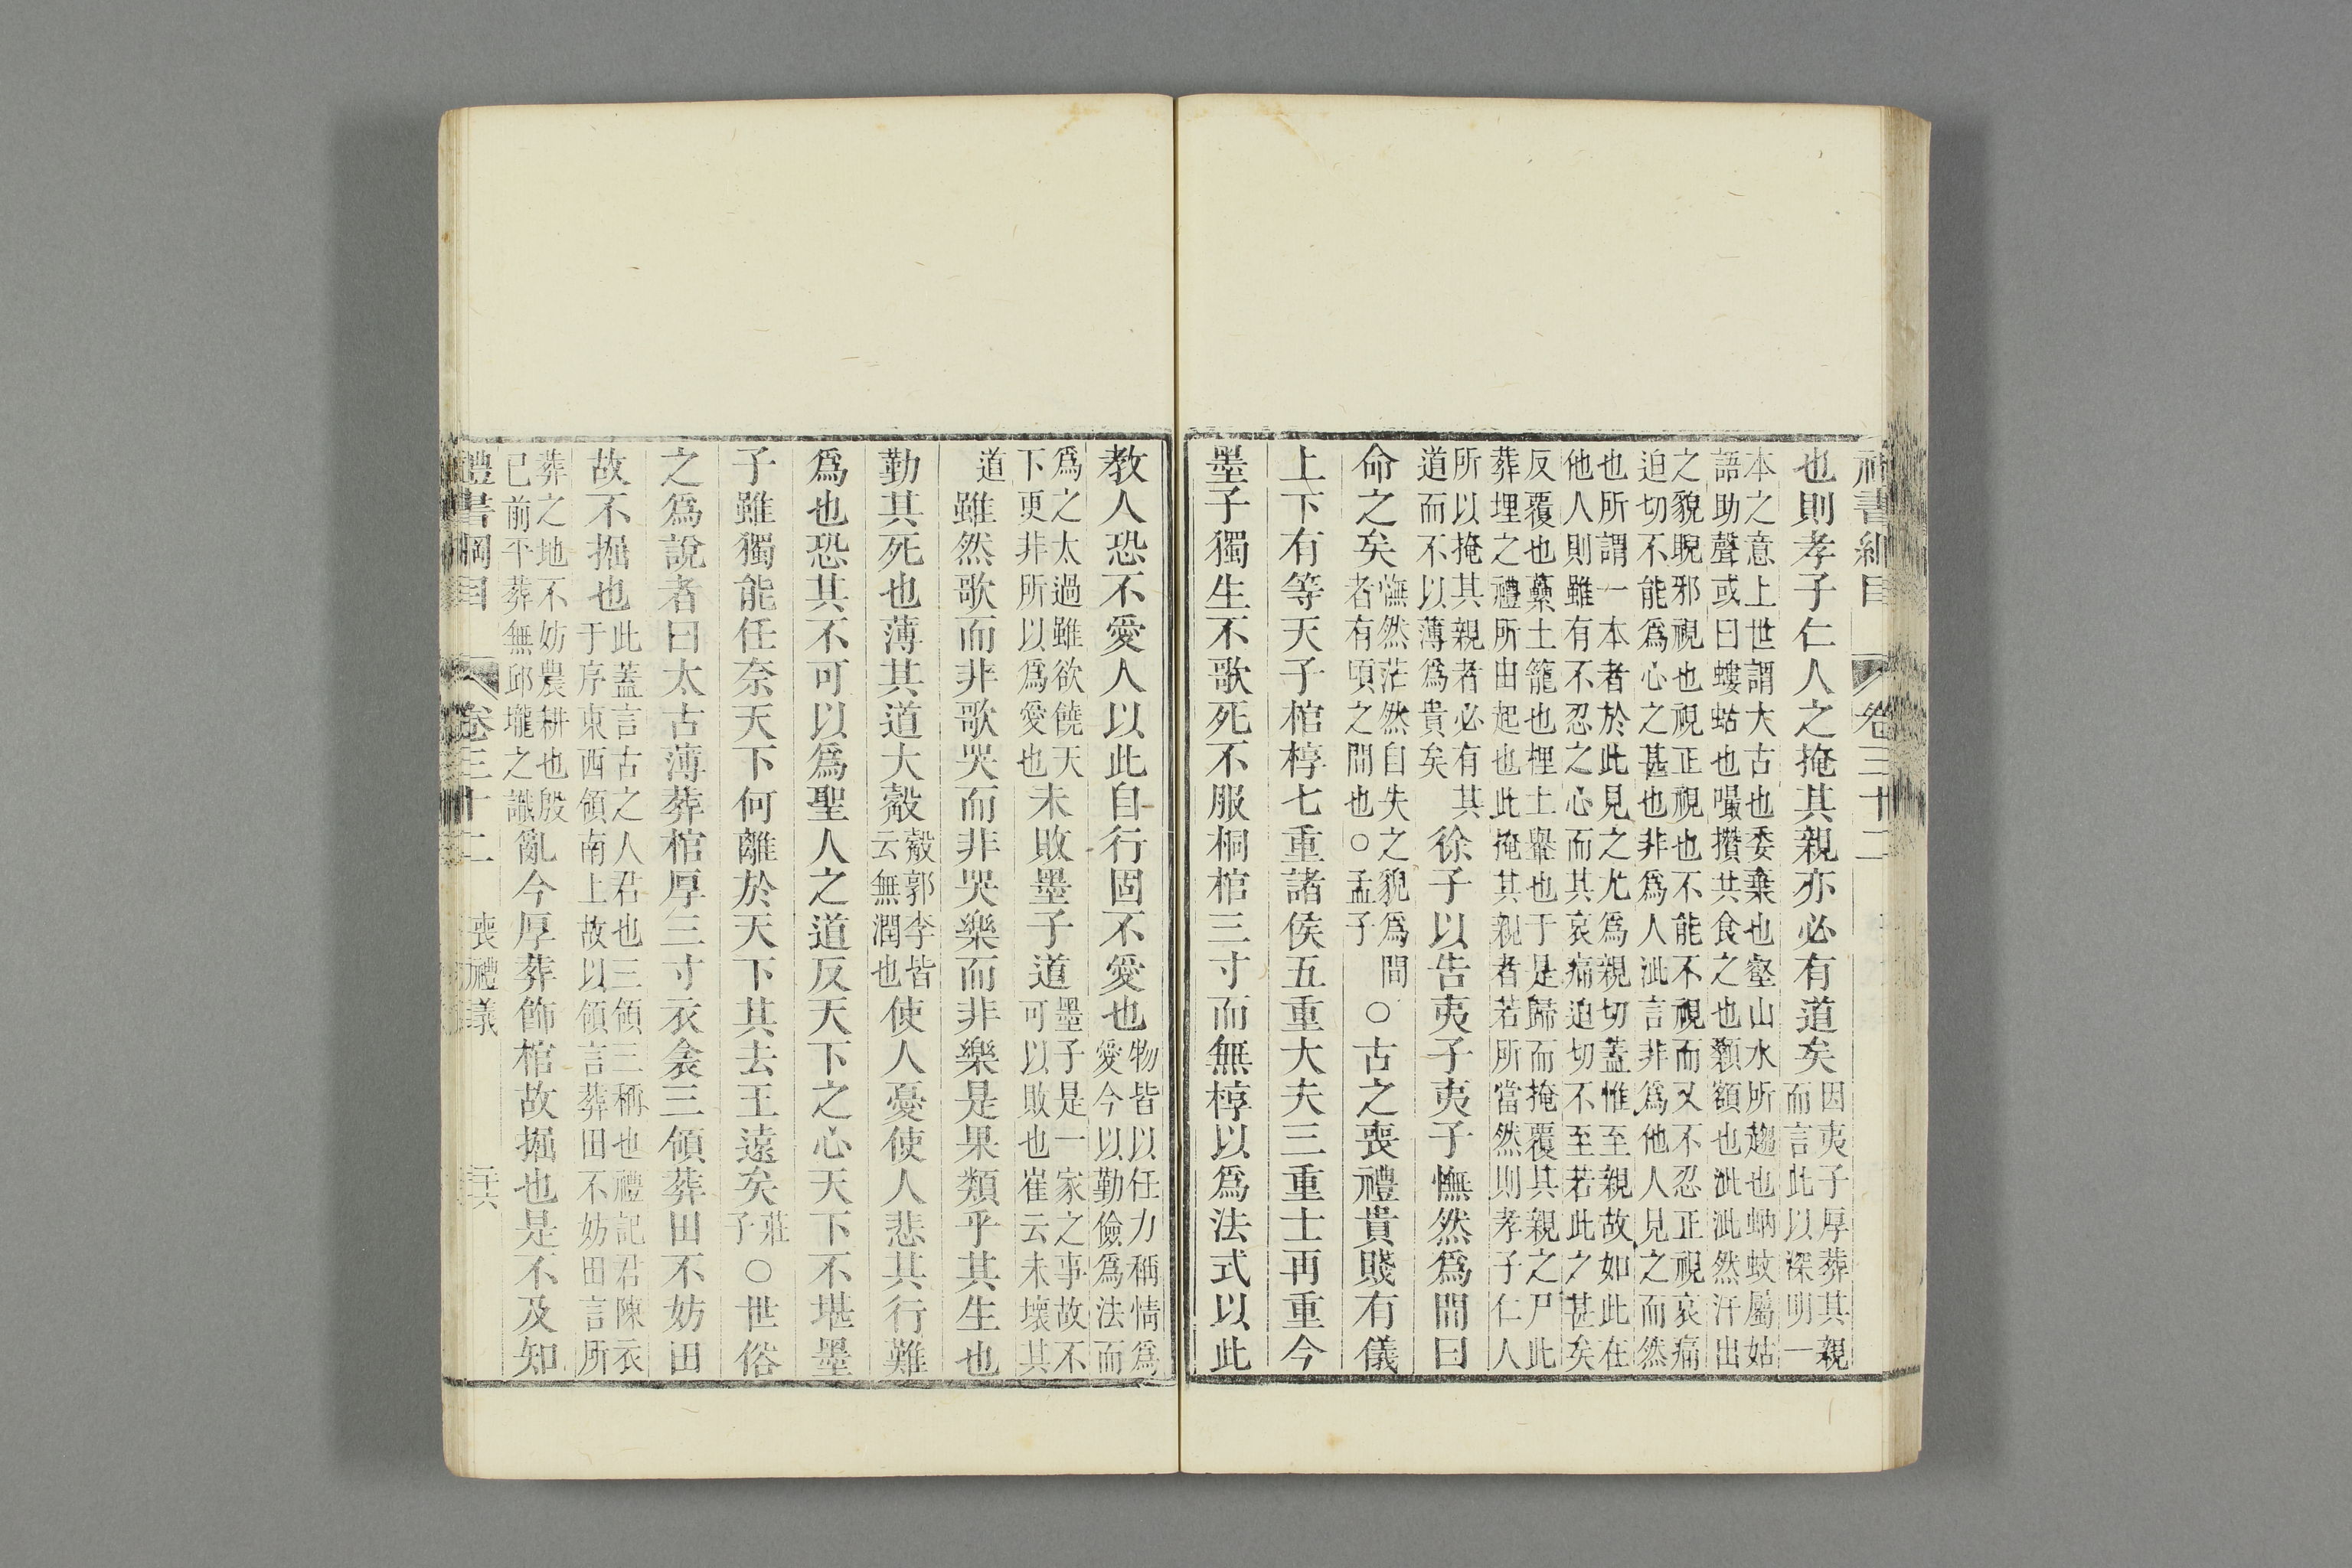 書綱目　卷三十二
也則孝子仁人之掩其親亦必有道矣因夷子厚葬其親
而言此以深明一
本之意上世謂大古也委棄也壑山水所趨也蚋蚊屬姑
語助聲或曰螻蛄也嘬攢共食之也顙額也泚泚然汗出
之貌睨邪視也視正視也不能不視而又不忍正視哀痛
迫切不能爲心之甚也非爲人泚言非爲他人見之而然
也所謂一本者於此見之尤爲親切蓋惟至親故如此在
他人則雖有不忍之心而其哀痛迫切不至若此之甚矣
反覆也虆土籠也梩土轝也于是歸而掩覆其親之尸此
葬埋之禮所由起也此掩其親者若所當然則孝子仁人
所以掩其親者必有其
道而不以薄爲貴矣
徐子以告夷子夷子憮然爲間曰
命之矣憮然茫然自失之貌爲間
者有頃之間也○孟子
○古之喪禮貴賤有儀
上下有等天子棺椁七重諸侯五重大夫三重士再重今
墨子獨生不歌死不服桐棺三寸而無椁以爲法式以此
教人恐不愛人以此自行固不愛也物皆以任力稱情爲
愛今以勤儉爲法而
爲之太過雖欲饒天
下更非所以爲愛也
未敗墨子道墨子是一家之事故不
可以敗也崔云未壞其
道雖然歌而非歌哭而非哭樂而非樂是果類乎其生也
勤其死也薄其道大觳觳郭李皆
云無潤也
使人憂使人悲其行難
爲也恐其不可以爲聖人之道反天下之心天下不堪墨
子雖獨能任奈天下何離於天下其去王遠矣莊
子
○世俗
之爲說者曰太古薄葬棺厚三寸衣衾三領葬田不妨田
故不掘也此蓋言古之人君也三領三稱也禮記君陳衣
于序東西領南上故以領言葬田不妨田言所
葬之地不妨農耕也殷
已前平葬無邱壠之識
亂今厚葬飾棺故掘也是不及知
禮書綱目　卷三十二　喪禮義　三十六